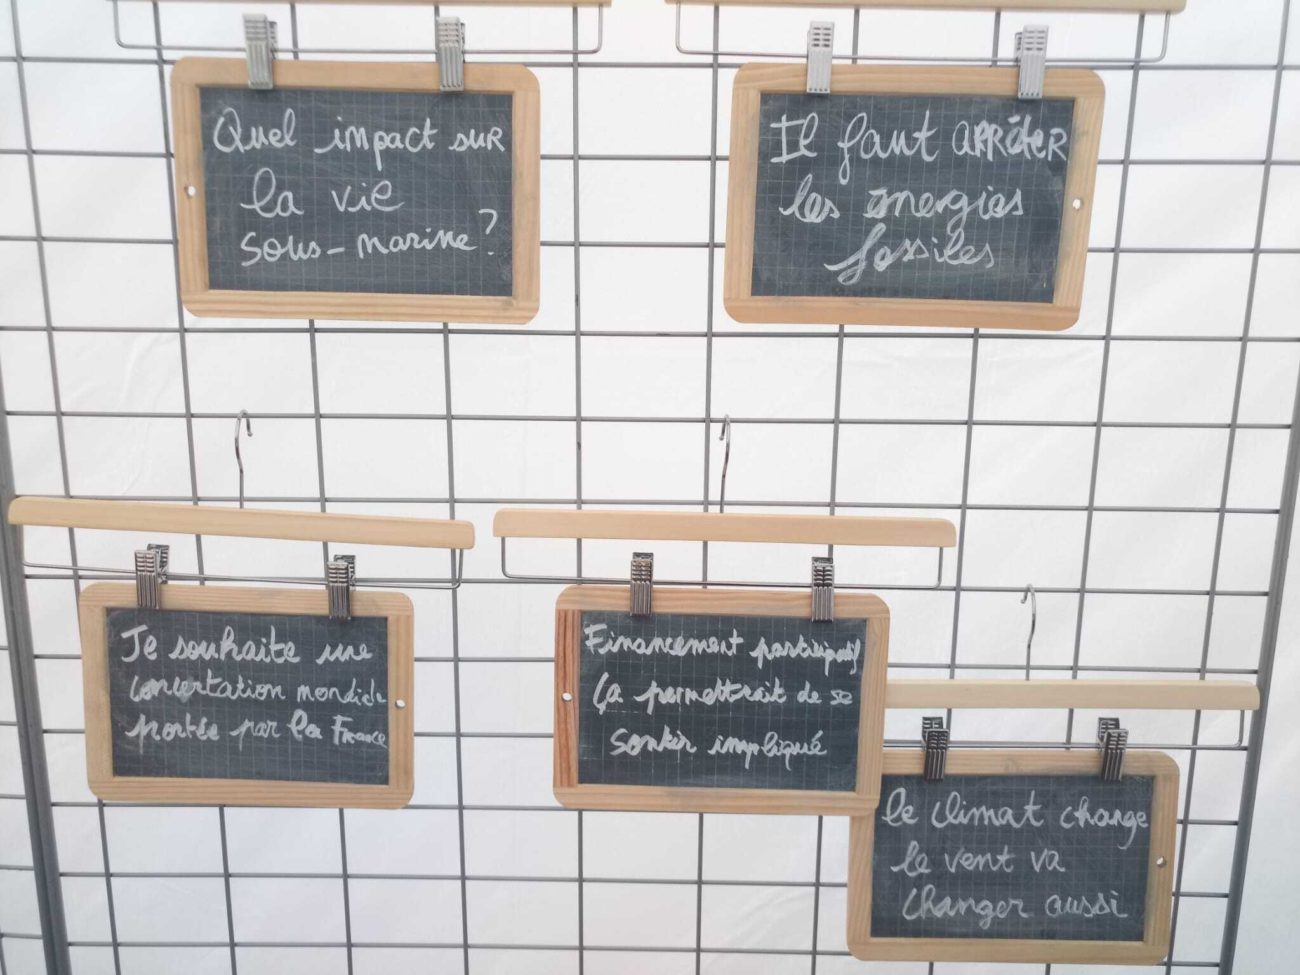 Quel impact sur
la vie
sous-marine?
Il faut arrêter
les énergies
fossiles
Je souhaite une
concertation mondiale
portée par la France
Financement participatif
ça permettrait de se
sentir impliqué
le climat change
le vent va
changer aussi